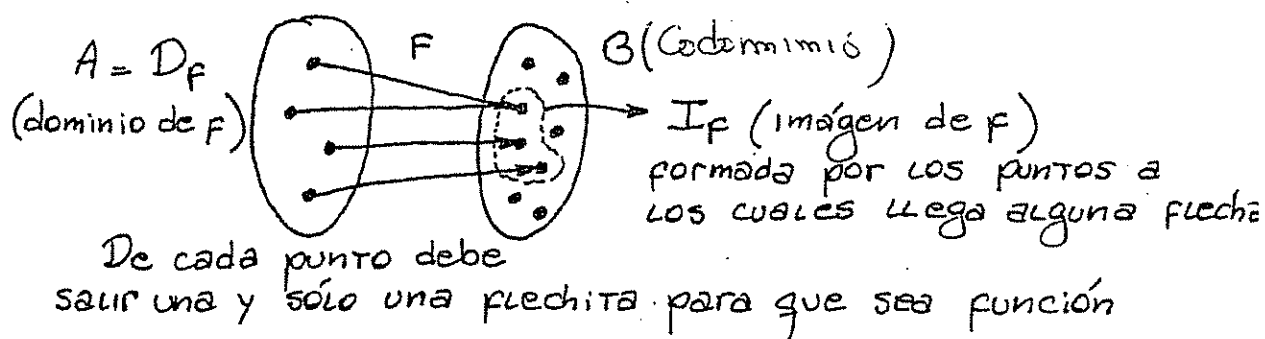 A = D_F
F
B (Codominio)
(dominio de F)
I_F (imágen de F)
formada por los puntos a
los cuales llega alguna flecha
De cada punto debe
salir una y sólo una flechita para que sea función